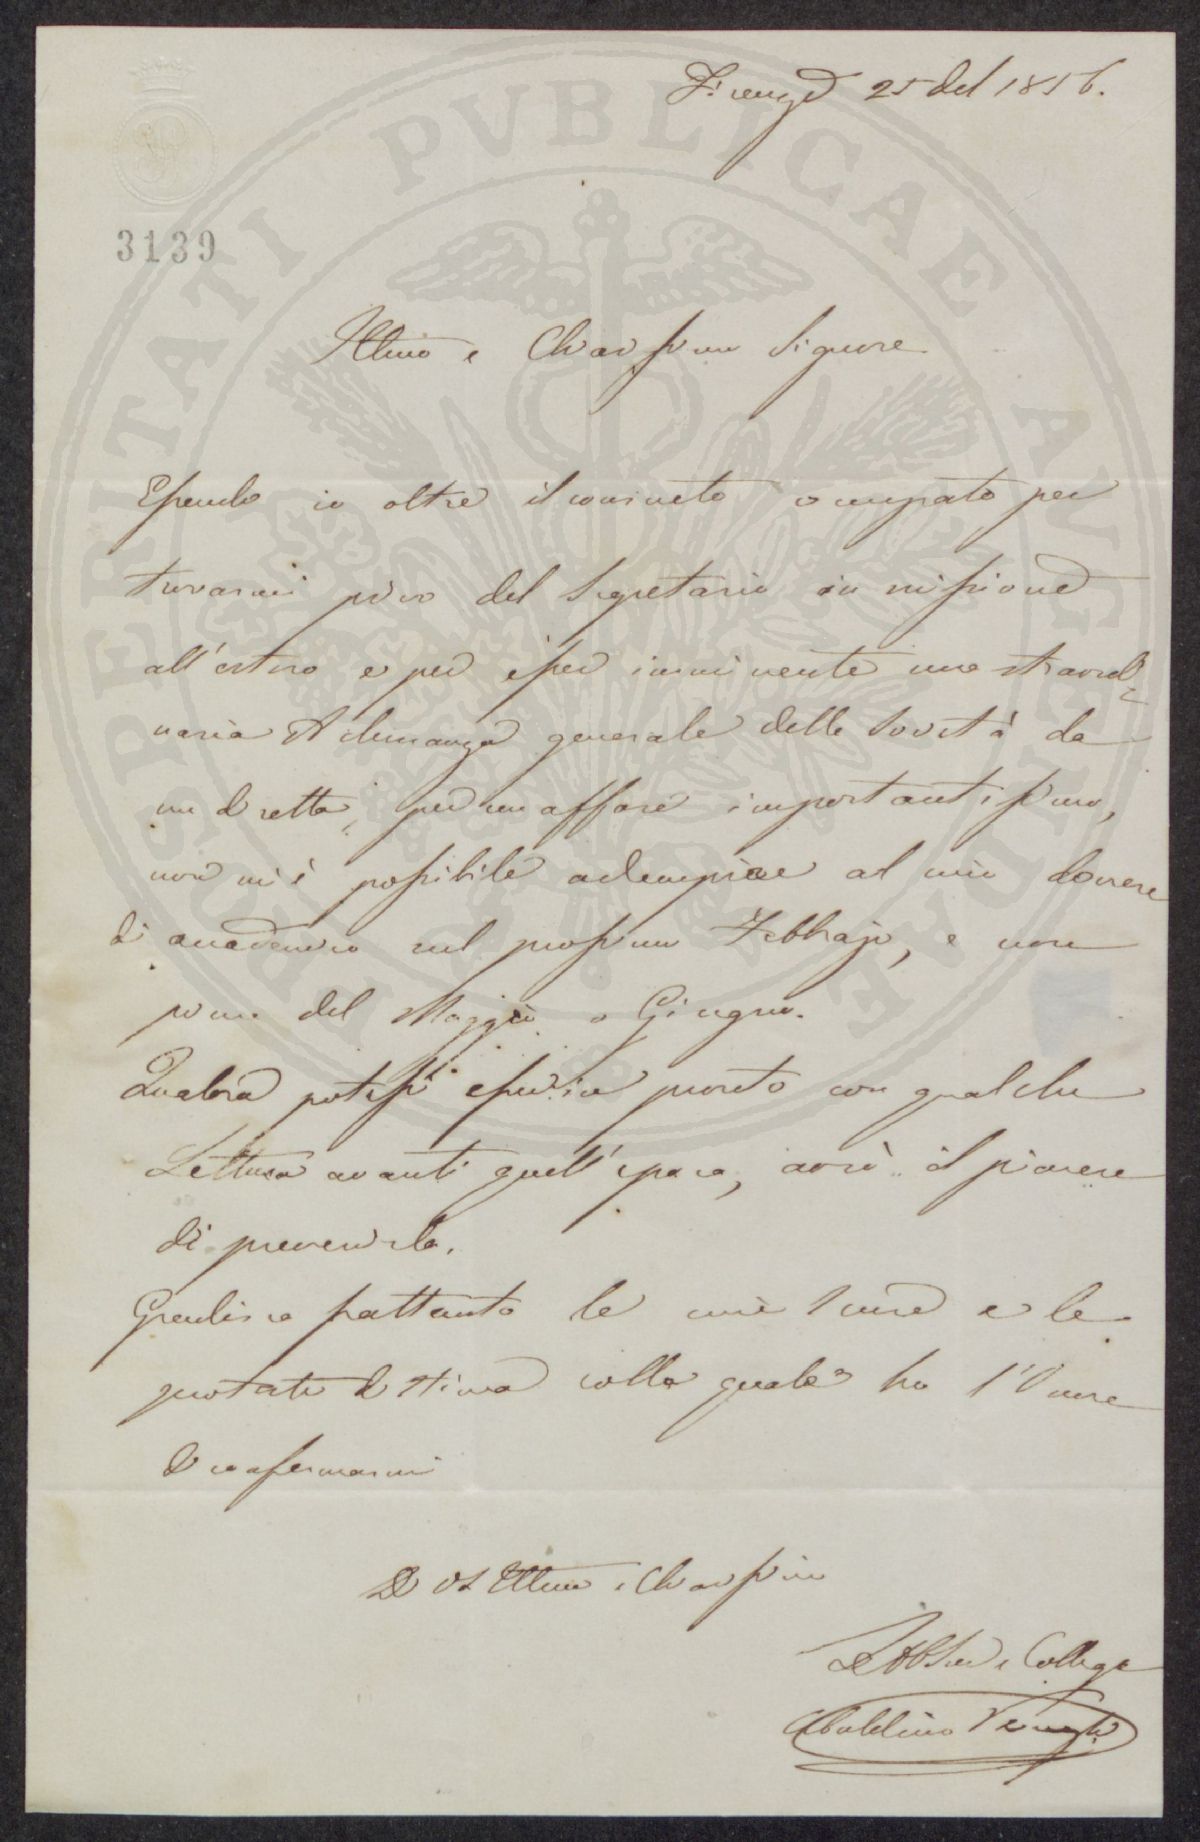 Firenze 25 del 1856.
3139
Illmo e Chiarissimo Signore
Essendo io oltre il consueto occupato per
trovarmi privo del Segretario in missione
all'estero e per esser imminente una straordi=
naria Adunanza generale della Società da
me diretta, per un affare importantissimo,
non mi è possibile adempiere al mio dovere
di accademico nel prossimo Febbrajo, e non
prima del Maggio o Giugno.
Qualora potessi esserne pronto con qualche
Lettura avanti quell'epoca, avrò il piacere
di prevenirla.
Gradisca frattanto le mie scuse e le
proteste di stima colla quale ho l'Onore
di confermarmi
Di VS Illma e Chiarissima
Devmo Obbl. Ser. e Collega
Abaldino Peruzzi
PROSPERITATI PVBLICAE AVGENDAE